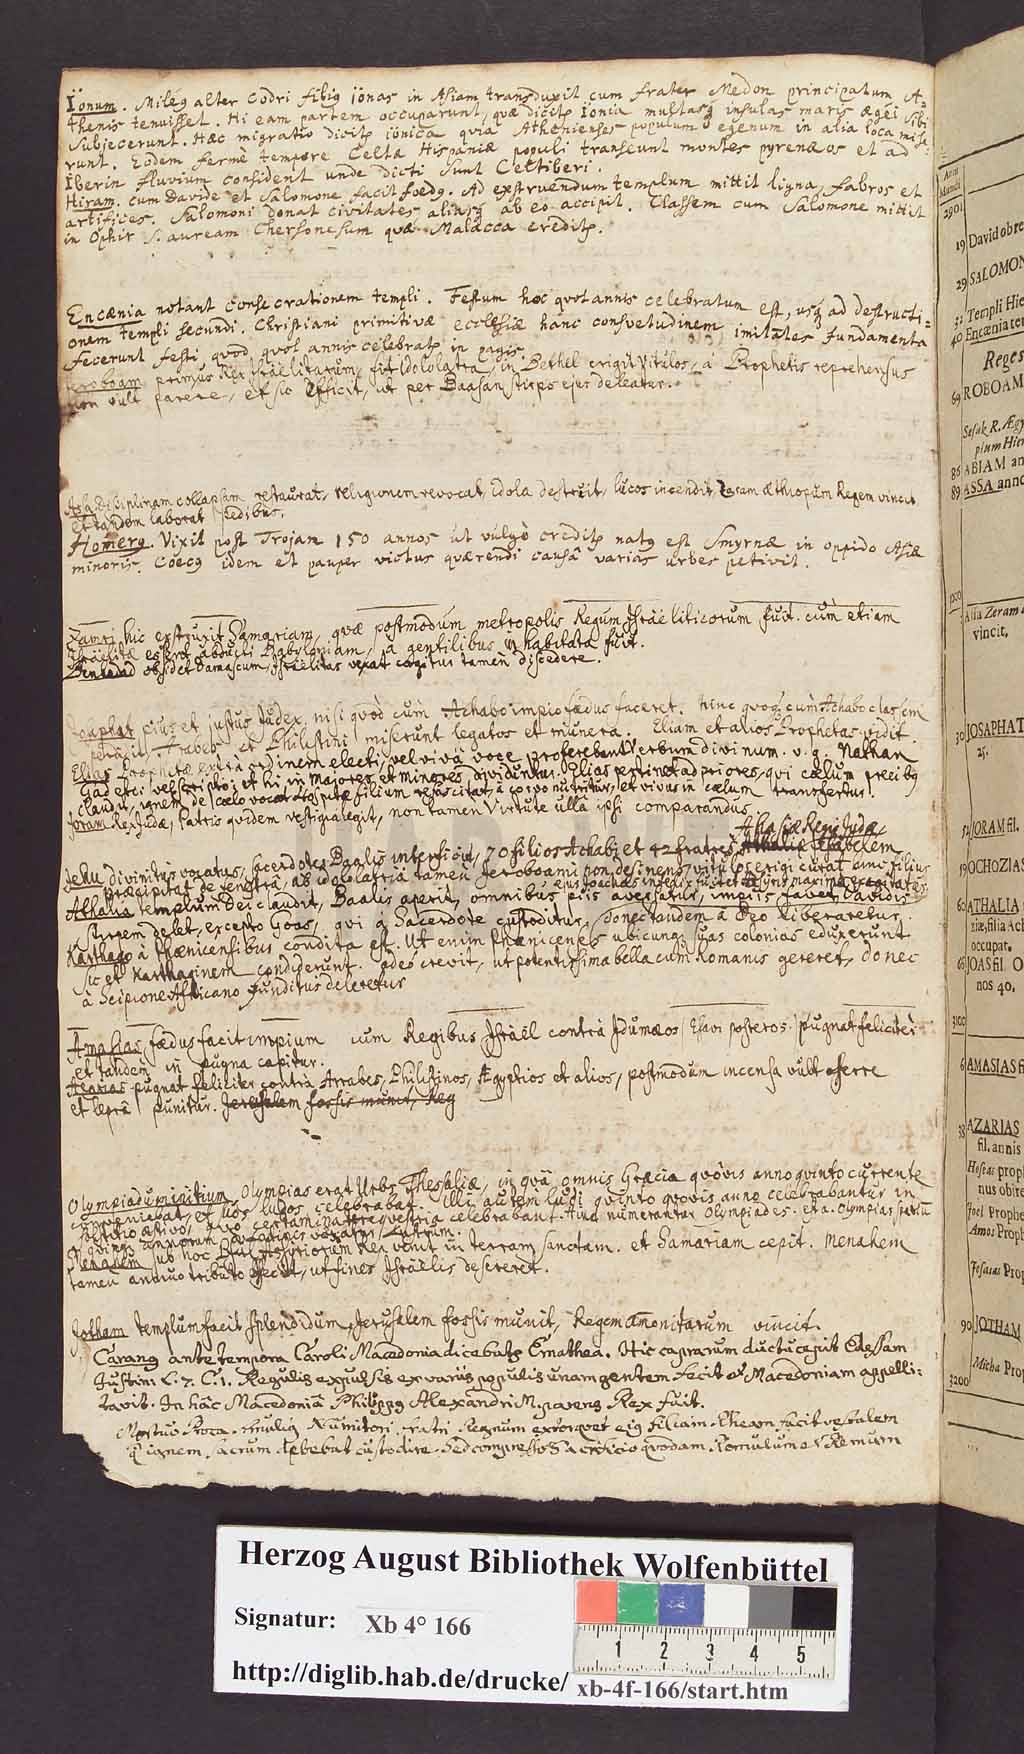 Ionum. Mileg alter Codri filig jonas in Asiam transduxit cum frater Medon principatum A-
thenis tenuisset. Hi eam partem occuparunt, quæ dicitr Ionia multasq insulas maris ægei sibi
subjecerunt. Hæc migratio dicitr ionica quia Athenienses populum egenum in alia loca mise-
runt. Eodem fermè tempore Celtæ Hispaniæ populi transeunt montes pyrenæos et ad
Iberin fluvium consident unde dicti sunt Celtiberi.
Hiram. cum Davide et Salomone facit foedg. Ad exstruendum templum mittit ligna, fabros et
artifices. Salomoni donat civitates aliasq ab eo accipit. Classem cum Salomone mittit
in Ophir s. auream Chersonesum quæ Malacca creditr.
Encænia notant consecrationem templi. Festum hoc quotannis celebratum est, usq ad destructi=
onem templi secundi. Christiani primitivæ ecclesiæ hanc consvetudinem imitates fundamenta
fecerunt festi quod quot annis celebratr in pagis.
Jeroboam primus Rex Israelitarum, fit Idololatra, in Bethel erigit vitulos, à Prophetis reprehensus
non vult parere, et sic efficit, ut per Baasan stirps ejus deleatur.
Asa disciplinam collapsam restaurat, religionem revocat, idola destruit, lucos incendit, Zaram Æthiopum Regem vincit
et tandem laborat pedibus.
Homerg. Vixit post Trojam 150 annos ut vulgò creditr natg est Smyrnæ in oppido Asiæ
minoris. Coecg idem et pauper victus quærendi causâ varias urbes petivit.
Zamri hic exstruxit Samariam, quæ postmodum metropolis Regum Israëliticorum fuit. cum etiam
Israëlitæ essent abducti Babyloniam, à gentilibus inhabitata fuit.
Benhadad obsidet Damascum, Israelitas vexat cogitur tamen discedere.
Josaphat pius et justus Judex, nisi quòd cum Achabo impio foedus faceret. Hinc quoq cùm Achabo classem
Arabes et Philistini miserunt legatos et munera. Eliam et alios Prophetas vidit.
Elias Prophetæ extra ordinem electi, vel vivâ voce proferebant verbum divinum. v. g. Nathan
Gad etc: vel scripto; et hi in majores et minores dividuntur. Elias pertinet ad priores, qui cælum precibg
claudit, ignem de coelo vocat filium resuscitat, à corvo nutritur, et vivus in cælum transfertur.
Joram Rex Judæ, Patris quidem vestigia legit, non tamen virtute ullâ ipsi comparandus.
Ahasiæ Regis Judæ
Jehu divinitus vocatus, sacerdotes Baalis interficit, 70 filios Achabi et 42 fratres Athaliæ Isabelem
præcipitat de fenestrâ, ab idololatria tamen Jeroboami non desinens, vitulos erigi curat
Athalia templum Dei claudit, Baalis aperit, omnibus piis aversatur, impiis favet, Davidis
stirpem delet, excepto Goas, qui à Sacerdote custoditur, donec tandem à Deo liberaretur.
Karthago à Phoenicensibus condita est. Ut enim Phoenicenes ubicunq suas colonias eduxerunt
sic et Karthaginem condiderunt. adeò crevit, ut potentissima bella cum Romanis gereret, donec
à Scipione Africano funditus deleretur
Amasias, foedus facit impium cum Regibus Israël contrà Idumæos (Esavi posteros) pugnat feliciter
et tandem in pugna capitur.
Azarias pugnat feliciter contrà Arrabes, Philistinos, Ægyptios et alios, postmodum incensa vult offerre
et leprâ punitur. Jerusalem fossis munit, Reg
Olympiadum initium Olympias erat Urbs Thessaliæ, in quâ omnis Græcia quovis anno quinto currente
conveniebat, et hos ludos celebrabat. Illi autem ludi quinto quovis anno celebrabantur in
solstitio æstivo, quo certamina celebrabant. Aliud numerantur Olympiades. et a. Olympias spatiu
5 quinq annorum à Latinis vocatur Lustrum.
Menahem sub hoc Phul Assyriorum Rex venit in terram sanctam. et Samariam cepit. Menahem
tamen annuo tributo effecit, ut fines Israëlis desereret.
Jotham templum facit splendidum, Jerusalem fossis munit, Regem Amonitarum vincit.
Carang ante tempora Caroli Macedonia dicebatr Emathea. Hic caprarum ductu cepit Edessam
Justini L. 7. C. 1. Regulis expulsis ex variis populis unam gentem fecit et Macedoniam appelli:
tavit. In hâc Macedoniâ Philippg Alexandri M. parens Rex fuit.
Mortuo Proca. Amulig Numitori fratri Regnum extorquet eig filiam Rheam facit vestalem
q ignem sacrum debebat custodire. Sed compressa à quodam. Romulum et Remum
Anno
Mundi
2901
19 David obre
29 SALOMON
32 Templi Hie
40 Encænia tem
Reges
69 ROBOAM
Sesak R. Ægy
ptum Hier
86 ABIAM an
89 ASSA anno
Assa Zeram
vincit,
30 JOSAPHAT
25.
JORAM fil.
59 OCHOZIAS
60 ATHALIA
ziæ, filia Ach
occupat.
66 JOAS fil. O
nos 40.
3100
6 AMASIAS fi
38 AZARIAS
fil. annis
Hoseas proph
nus obire
Joel Prophe
Amos Proph
Jesaias Prop
90 JOTHAM
Micha Prop
3200
Herzog August Bibliothek Wolfenbüttel
Signatur: Xb 4° 166
http://diglib.hab.de/drucke/ xb-4f-166/start.htm
1 2 3 4 5